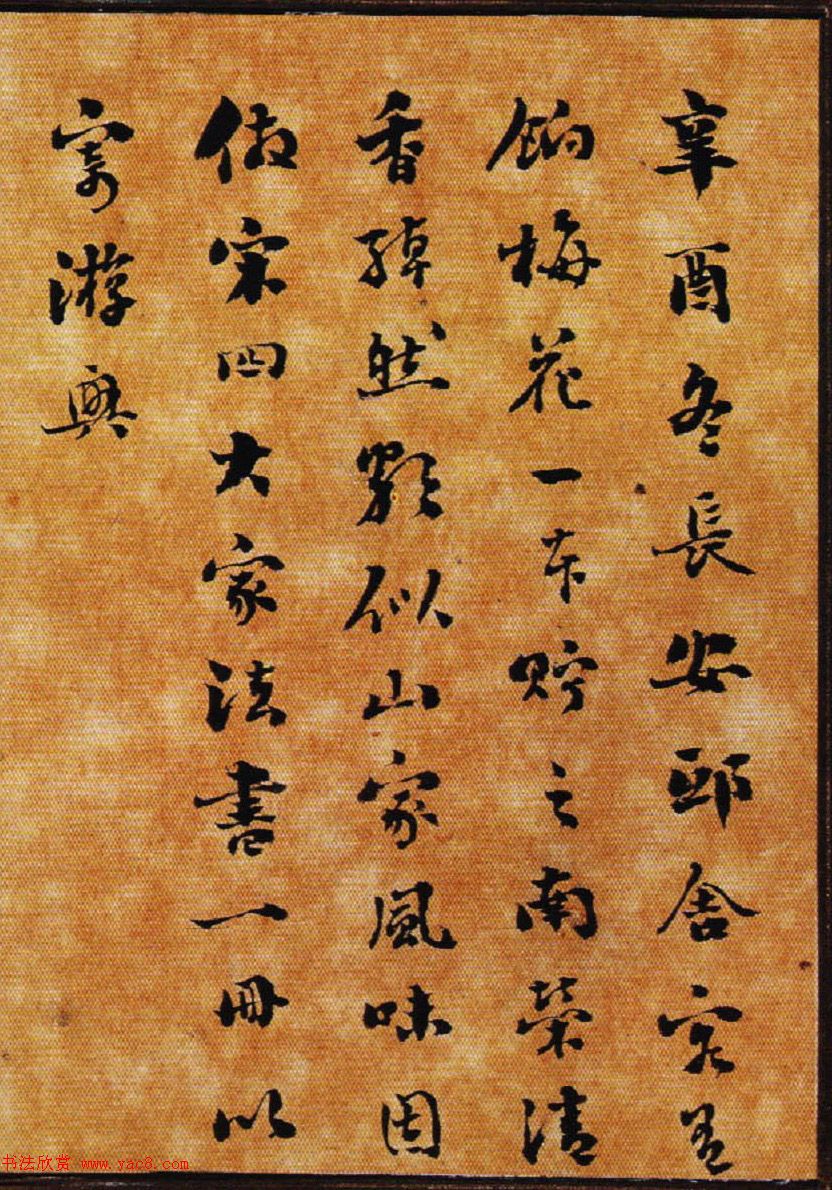 辛酉冬長安邸舍客有
餉梅花一本貯之南榮清
香綽然顆似山家風味因
倣宋四大家法書一冊以
寄游興
书法欣赏 www.yac8.com